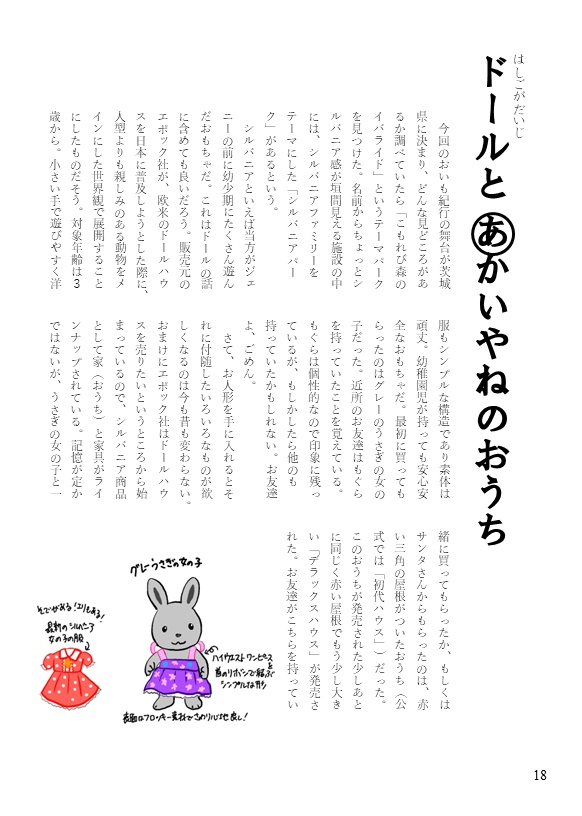 はしごがだいじ
ドールとあかいやねのおうち
今回のおいも紀行の舞台が茨城
県に決まり、どんな見どころがあ
るか調べていたら「こもれび森の
イバライド」というテーマパーク
を見つけた。名前からちょっとシ
ルバニア感が垣間見える施設の中
には、シルバニアファミリーを
テーマにした「シルバニアパー
ク」があるという。
シルバニアといえば当方がジェ
ニーの前に幼少期にたくさん遊ん
だおもちゃだ。これはドールの話
に含めても良いだろう。販売元の
エポック社が、欧米のドールハウ
スを日本に普及しようとした際に、
人型よりも親しみのある動物をメ
インにした世界観で展開すること
にしたものだそう。対象年齢は３
歳から。小さい手で遊びやすく洋
服もシンプルな構造であり素体は
頑丈。幼稚園児が持っても安心安
全なおもちゃだ。最初に買っても
らったのはグレーのうさぎの女の
子だった。近所のお友達はもぐら
を持っていたことを覚えている。
もぐらは個性的なので印象に残っ
ているが、もしかしたら他のも
持っていたかもしれない。お友達
よ、ごめん。
さて、お人形を手に入れるとそ
れに付随したいろいろなものが欲
しくなるのは今も昔も変わらない。
おまけにエポック社はドールハウ
スを売りたいというところから始
まっているので、シルバニア商品
として家（おうち）と家具がライ
ンナップされている。記憶が定か
ではないが、うさぎの女の子と一
緒に買ってもらったか、もしくは
サンタさんからもらったのは、赤
い三角の屋根がついたおうち（公
式では「初代ハウス」）だった。
このおうちが発売された少しあと
に同じく赤い屋根でもう少し大き
い「デラックスハウス」が発売さ
れた。お友達がこちらを持ってい
グレーうさぎの女の子
ハイウエストワンピースを
首のリボンで結ぶ
シンプルな形
表面はフロッキー素材でさわり心地良し！
そでがある！エリもある！
最新のシルバニア
女の子の服
18